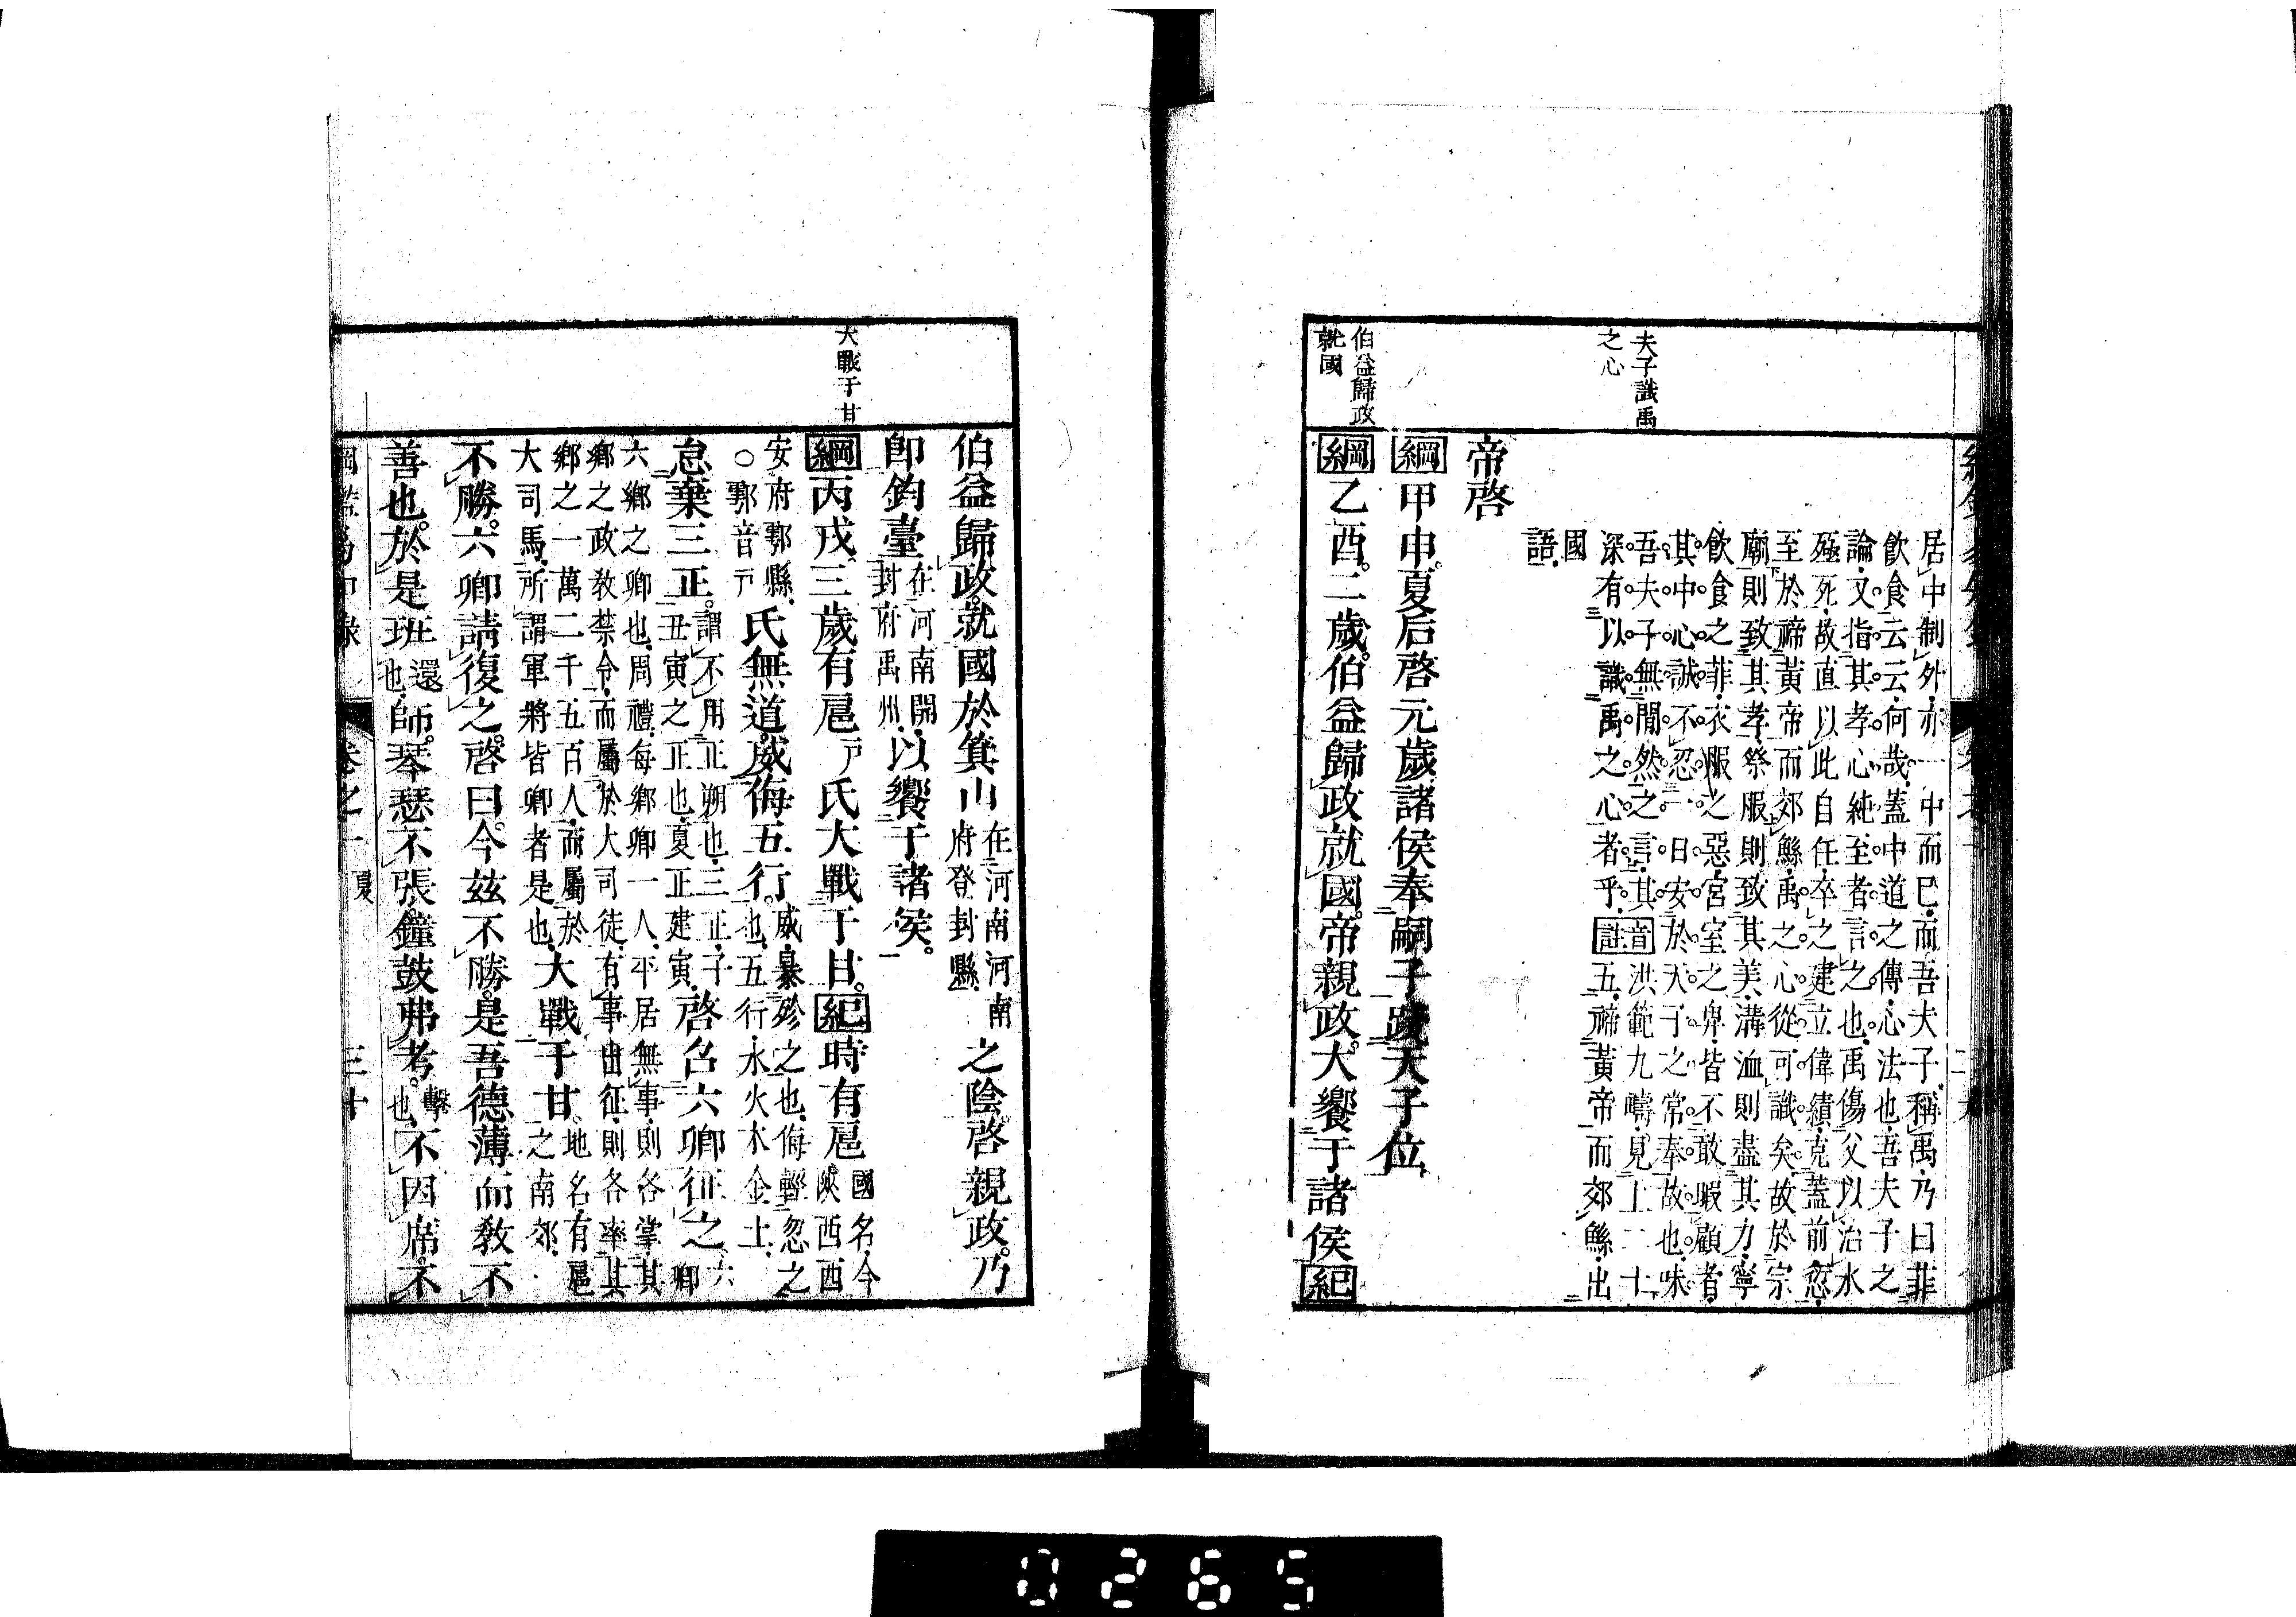 夫子識禹
之心
伯益歸政
就國
居中制外亦一中而已而吾夫子稱禹乃曰菲
飲食云云何哉蓋中道之傳心法也吾夫子之
論又指其孝心純至者言之也禹傷父以治水
殛死故直以此自任卒之建立偉績克蓋前愆
至於禘黃帝而郊鯀禹之心從可識矣故於宗
廟則致其孝祭服則致其美溝洫則盡其力寧
飲食之菲衣服之惡宮室之卑皆不敢暇顧者
其中心誠不忍一日安於天子之常奉故也味
吾夫子無間然之言其
深有以識禹之心者乎
音註
洪範九疇見上二十
五禘黃帝而郊鯀出
國
語
帝啓
綱甲申夏后啓元歲諸侯奉嗣子踐天子位
綱乙酉二歲伯益歸政就國帝親政大饗于諸侯紀
大戰于甘
伯益歸政就國於箕山在河南河南府登封縣之陰啓親政乃
卽鈞臺在河南開封府禹州以饗于諸侯
綱丙戌三歲有扈戸氏大戰于甘紀時有扈國名今陜西西
安府鄠縣○鄠音戸氏無道威侮五行威暴殄之也侮輕忽之也五行水火木金土
怠棄三正謂不用正朔也三正子丑寅之正也夏正建寅啓召六卿征之六卿
六鄉之卿也周禮每鄉卿一人平居無事則各掌其
鄉之政敎禁令而屬於大司徒有事出征則各率其
鄉之一萬二千五百人而屬於
大司馬所謂軍將皆卿者是也大戰于甘地名有扈之南郊
不勝六卿請復之啓曰今茲不勝是吾德薄而敎不
善也於是班還也師琴瑟不張鐘鼓弗考擊也不因席不
卷之一
夏
三十
0265